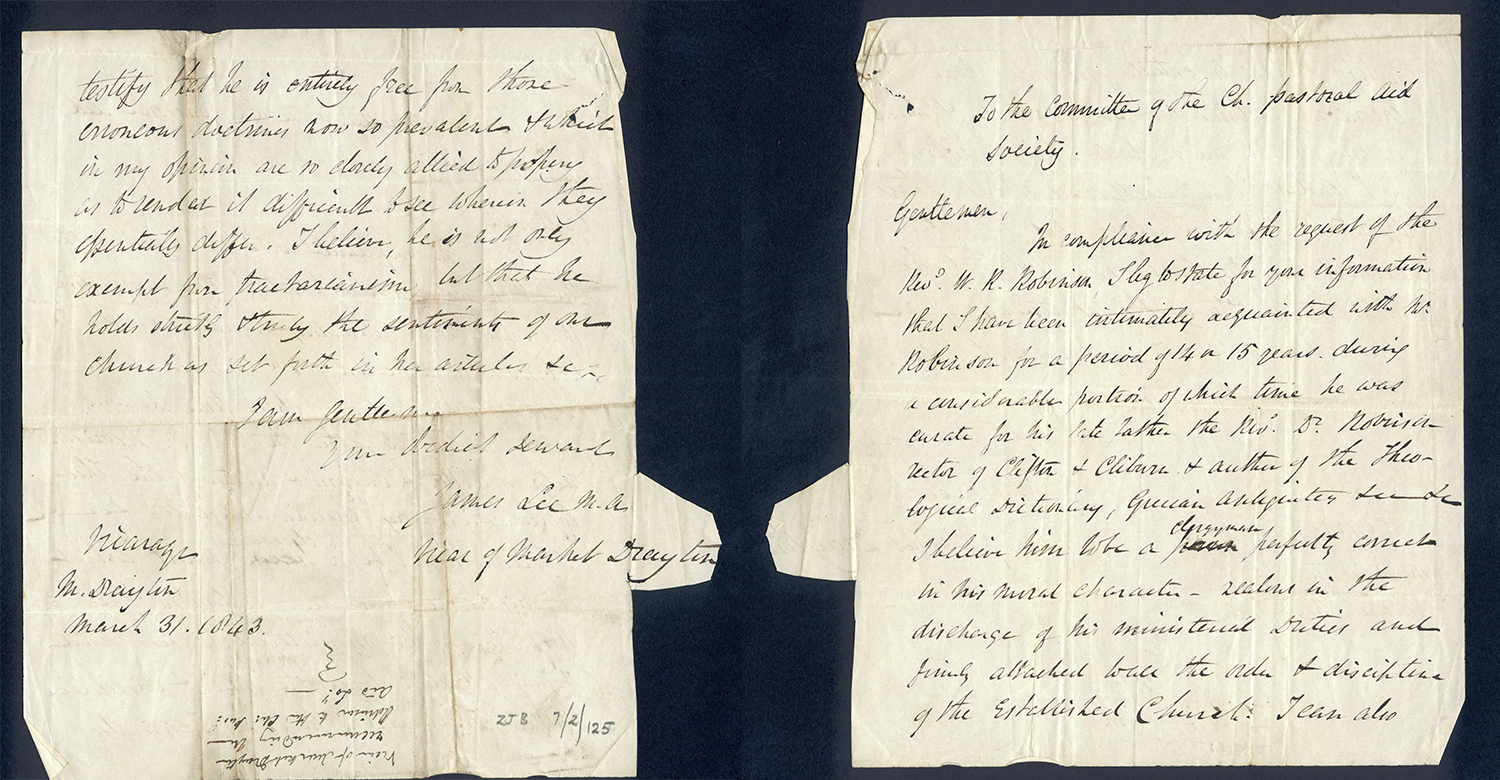 To the Committee of the Ch. pastoral Aid
Society.
Gentlemen,
In compliance with the request of the
Revd. W. R. Robinson, I beg to state for your information
that I have been intimately acquainted with Mr.
Robinson for a period of 14 or 15 years. during
a considerable portion of which time he was
curate for his late Father the Revd. Dr. Robinson
rector of Clifton & Cliburn & author of the Theo-
logical Dictionary, Grecian Antiquities &c &c
I believe him to be a clergyman perfectly correct
in his moral character - zealous in the
discharge of his ministerial Duties and
firmly attached to all the order & discipline
of the Established Church. I can also
testify that he is entirely free from those
erroneous doctrines now so prevalent & which
in my opinion are so closely allied to popery
as to render it difficult to see wherein they
essentially differ. I believe, he is not only
exempt from tractarianism, but that he
holds strictly the sentiments of our
church as set forth in her articles &c -
I am Gentlemen
Your obedient Servant
James Lee M.A.
Vicar of Market Drayton
Vicarage
M. Drayton
March 31. 1843.
Vicar of Market Drayton
recommending Mr
Robinson to the Ch: Past:
Aid So:y
ZJB 7/2/125